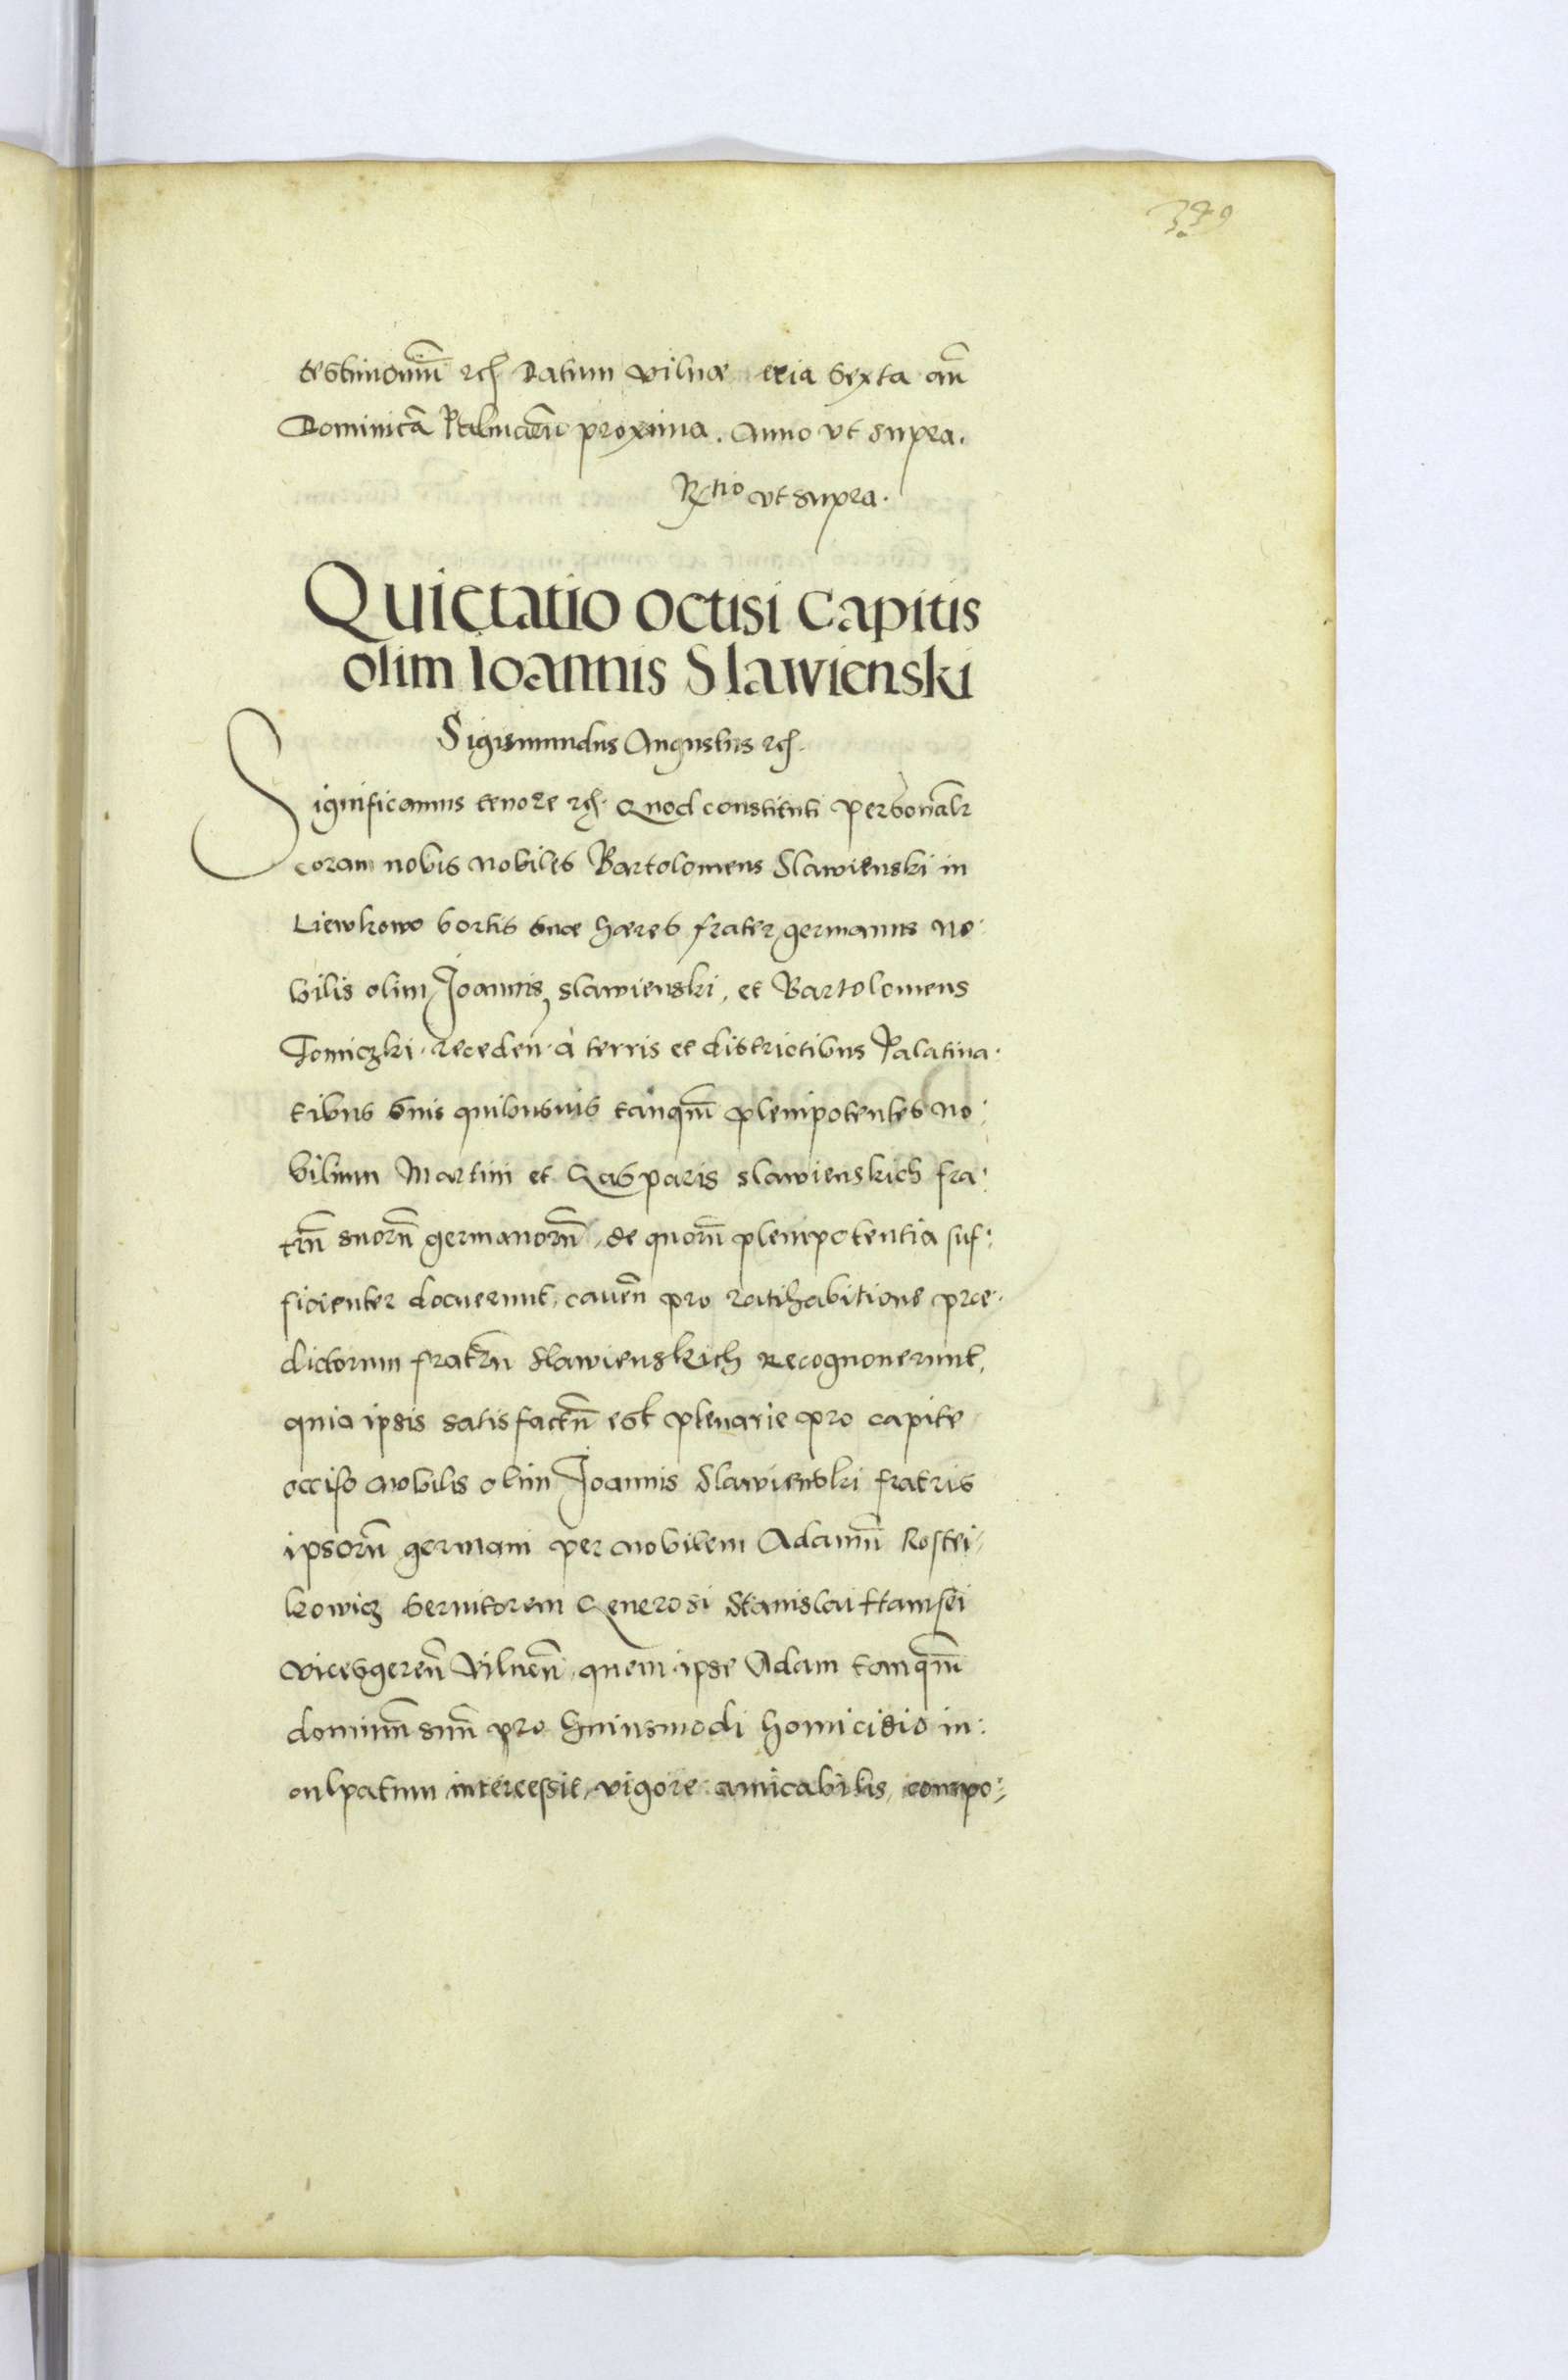 379
testimoniũ rcʒ Datum vilnæ eria sexta añ
Dominicã Palmarũ proxima. Anno vt supra.
Rtio vt supra.
Quietatio occisi Capitis
olim Ioannis Slawienski
Sigismundus Augustus rcʒ.
Significamus tenore rcʒ. Quod constituti personalr
coram nobis nobiles Bartolomeus Slawienski in
Liewkowo sortis suæ hæres frater germanus no:
bilis olim Joannis Slawienski, et Bartolomeus
Tomiczki. receden. à terris et districtibus Palatina:
tibus suis quibusuis tanq̃m plenipotentes no:
bilium Martini et Gasparis slawienskich fra:
trũ suorũ germanorũ, de quorũ plenipotentia suf:
ficienter docuerunt, caueñ pro ratihabitione præ:
dictorum fratrũ Slawienskich recognouerunt,
quia ipsis satisfactũ est plenarie pro capite
occiso nobilis olim Joannis Slawienski fratris
ipsorũ germani per nobilem Adamũ Kostri:
kowicz seruitorem Generosi Stanislai
vicesgereñ Vilneñ, quem ipse Adam tanq̃m
dominũ suũ pro huiusmodi homicidio in:
culpatum intercessit, vigore amicabilis compo: